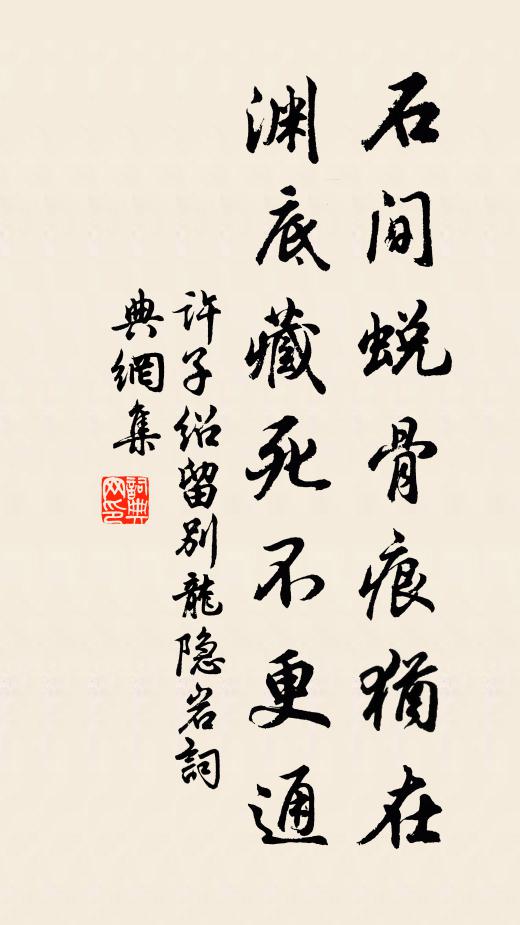 石间蜕骨痕犹在
渊底藏死不更通
许子绍留别龙隐岩词
典网集
词典
网印